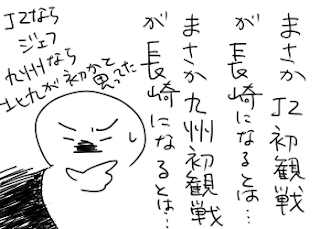 まさかJ2初観戦
が長崎になるとは…
まさか九州初観戦
が長崎になるとは…
J2なら
ジェフ
九州なら
北九が初かと思ってた